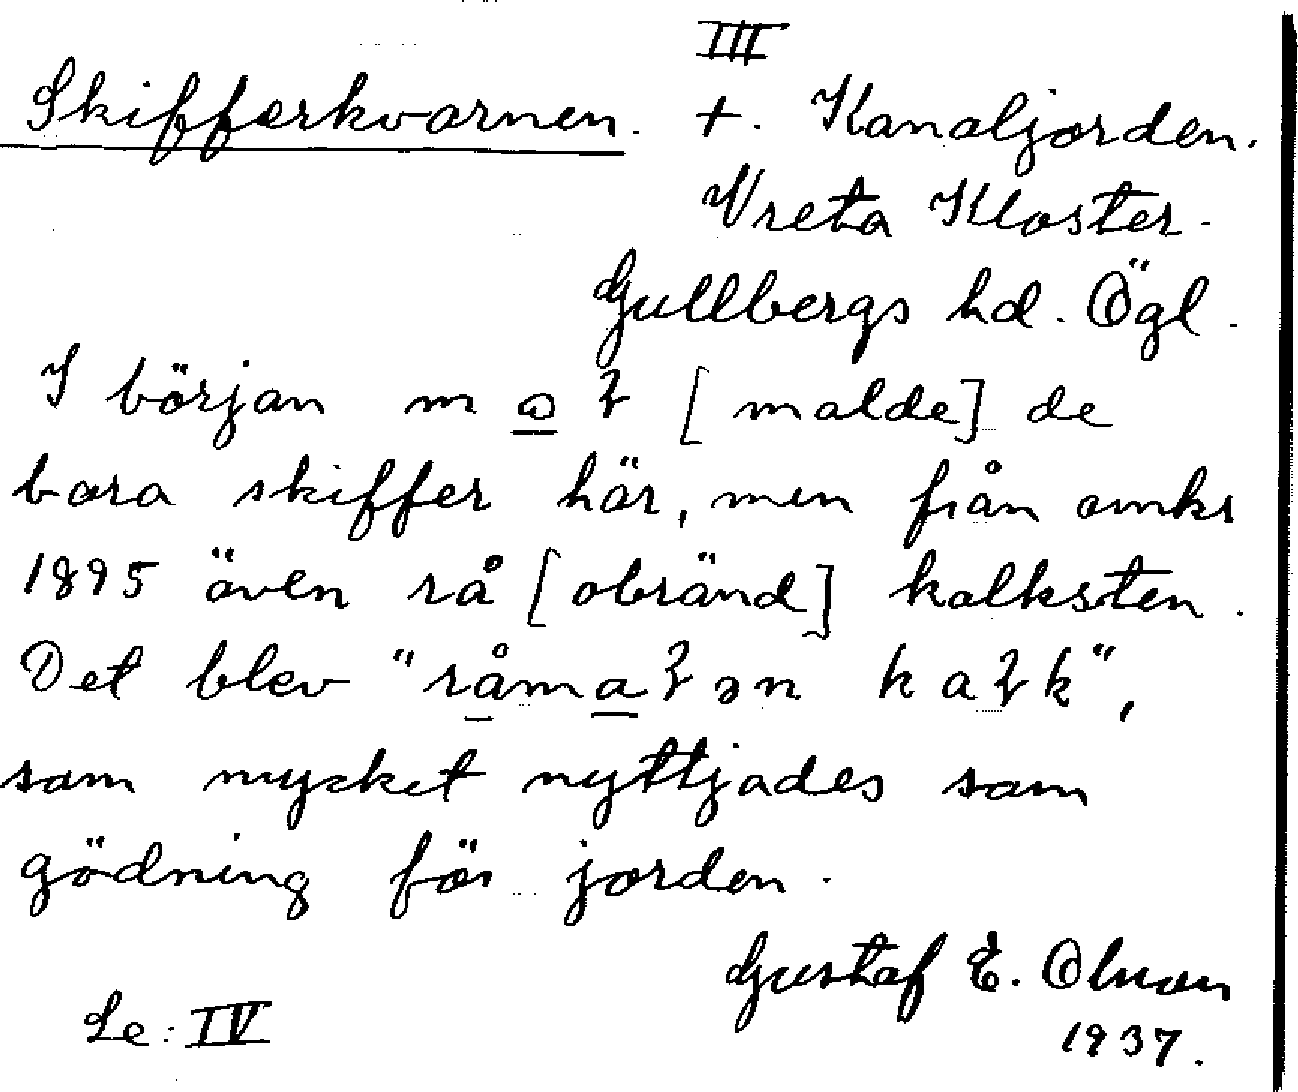 III
Skifferkvarnen. t. Kanaljorden.
Vreta Kloster.
Gullbergs hd. Ögl.
I början m [malde] de
bara skiffer här, men från omkr
1895 även rå [obränd] kalksten.
Det blev "råmaꝉən kaꝉk",
som mycket nyttjades som
gödning för jorden.
Gustaf E. Olsson
1937.
Se: IV